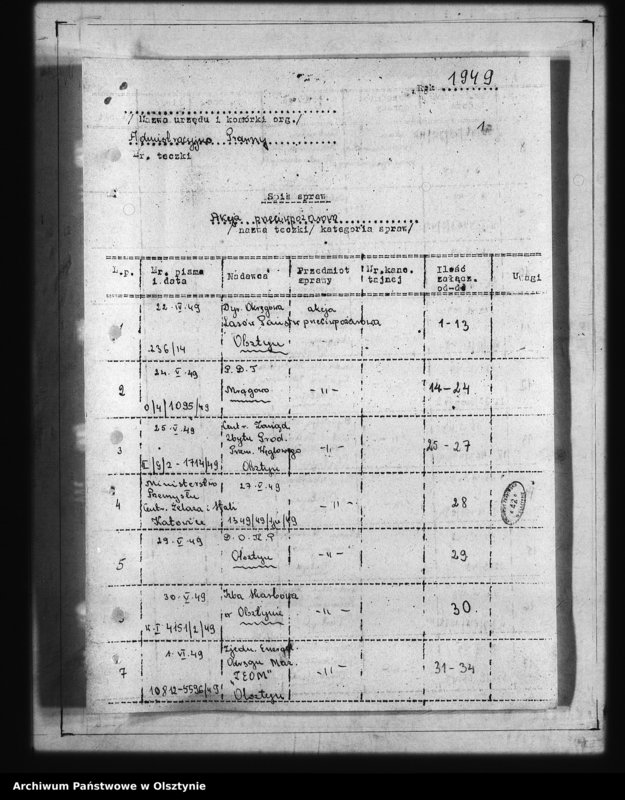 Rok 1949
/ Nazwa urzędu i komórki org./
1.
Administracyjno Prawny
Nr. teczki
Spis spraw
Akcja przeciwpożarowa
/ nazwa teczki/ kategoria spraw/
L.p. Nr. pisma i data Nadawca Przedmiot sprawy Nr.kanc. tajnej Ilość załącz. od-do Uwagi
1 22.IV.49 Dyr. Okręgowa akcja
Lasów Państw przeciwpożarowa 1-13
236/14 Olsztyn
2 24.V.49 P.D.T
Mrągowo -"- 14-24
0/4/1095/49
3 25.V.49 Centr. Zarząd
Zbytu Prod.
Przem. Węglowego -"- 25-27
II/9/2-1714/49 Olsztyn
4 Ministerstwo 27.V.49
Przemysłu -"- 28
Centr. Żelaza i Stali
Katowice 1349/49/49
5 29.V.49 D.O.K.P
Olsztyn -"- 29
30.V.49 Izba Skarbowa
w Olsztynie -"- 30
4151/2/49
7 1.VI.49 Zjedn. Energet.
Okręgu Maz. -"- 31-34
"ZEOM"
10812-5596/49 Olsztyn
Archiwum Państwowe w Olsztynie